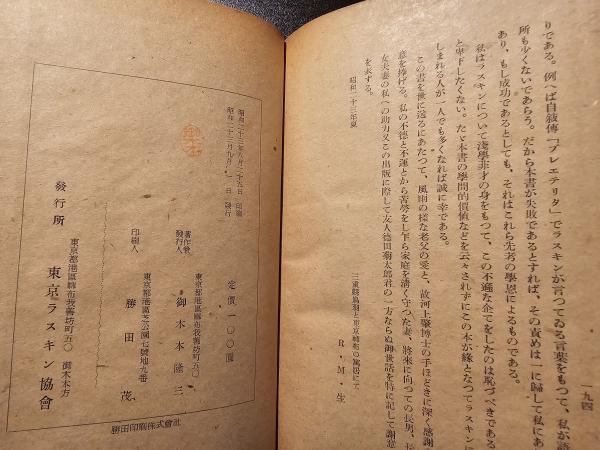 一九四
りである。例へば自敍傳「プレエテリタ」でラスキンが言つてゐる言葉をもつて、私が語
所も少くないであらう。だから本書が失敗であるとすれば、その責めは一に歸して私にあ
あり、もし成功であるとしても、それはこれら先考の學恩によるものである。
私はラスキンについて淺學非才の身をもつて、この不遜な企てをしたのは恥づべきである
と卑下したくない。たゞ本書の學問的價値などを云々されずにこの本が緣となつてラスキンに
しまれる人が一人でも多くなれば誠に幸である。
この書を世に送るにあたつて、風雨の樣な老父の愛と、故河上肇博士の手ほどきに深く感謝
意を捧げる。私の不德と不運とから苦勞をし乍ら家庭を淸く守つた妻、將來に向つての長男、長
女夫妻の私への助力又この出版に際して友人德田菊太郎君の一方ならぬ御世話を特に記して謝意
を表する。
昭和二十三年夏
三重縣鳥羽と東京麻布の寓居にて
R・M・生
昭和二十三年八月二十九日 印刷
昭和二十三年九月 一 日 發行
定價 一〇〇圓
著作兼
發行人
東京都港區麻布我善坊町五〇
御木本隆三
印刷人
東京都港區芝公園七號地九番
勝田 茂
發行所
東京都港區麻布我善坊町五〇 御木本方
東京ラスキン協會
勝田印刷株式會社